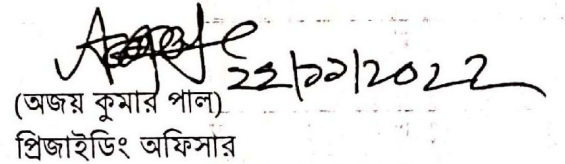 22/11/2022
(অজয় কুমার পাল)
প্রিজাইডিং অফিসার